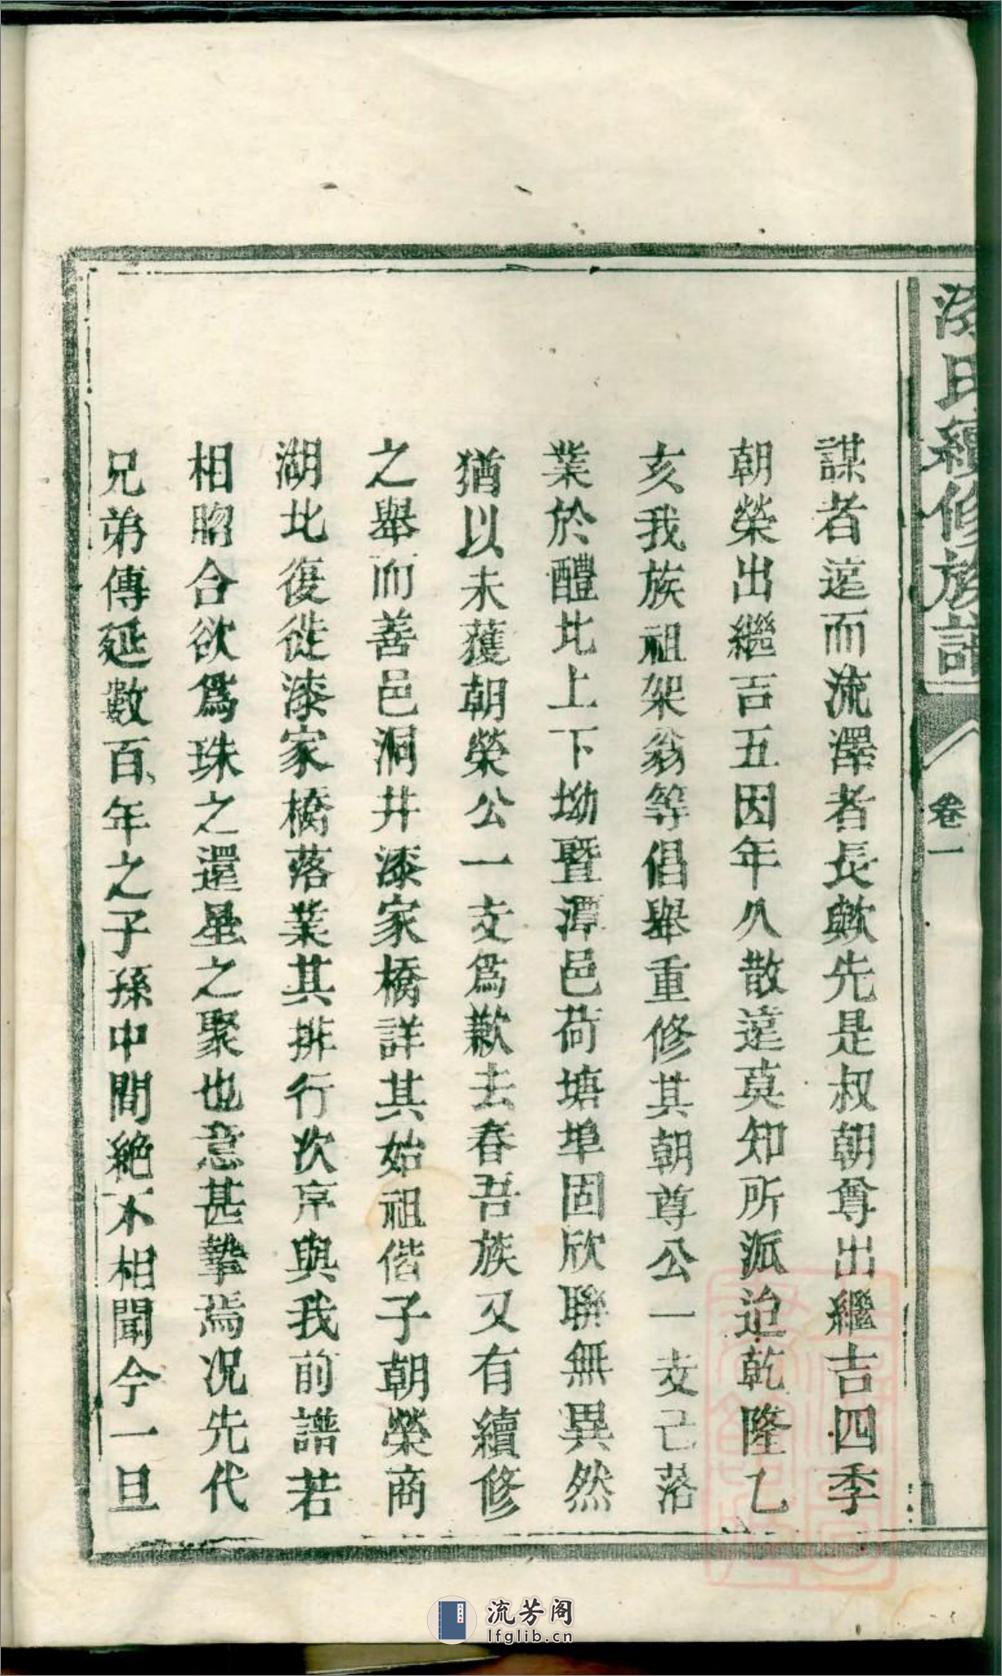 漆氏續修族譜
卷一
謀者遠而流澤者長歟先是叔朝尊出繼吉四季
朝榮出繼吉五因年久散遠莫知所派迨乾隆乙
亥我族祖架翁等倡舉重修其朝尊公一支已落
業於醴北上下坳暨潭邑荷塘埠固欣聯無異然
猶以未獲朝榮公一支爲歉去春吾族又有續修
之舉而善邑洞井漆家橋詳其始祖偕子朝榮商
湖北復徙漆家橋落業其排行次序與我前譜若
相脗合欲爲珠之還星之聚也意甚摯焉况先代
兄弟傳延數百年之子孫中間絶不相聞今一旦
流芳阁
lfglib.cn